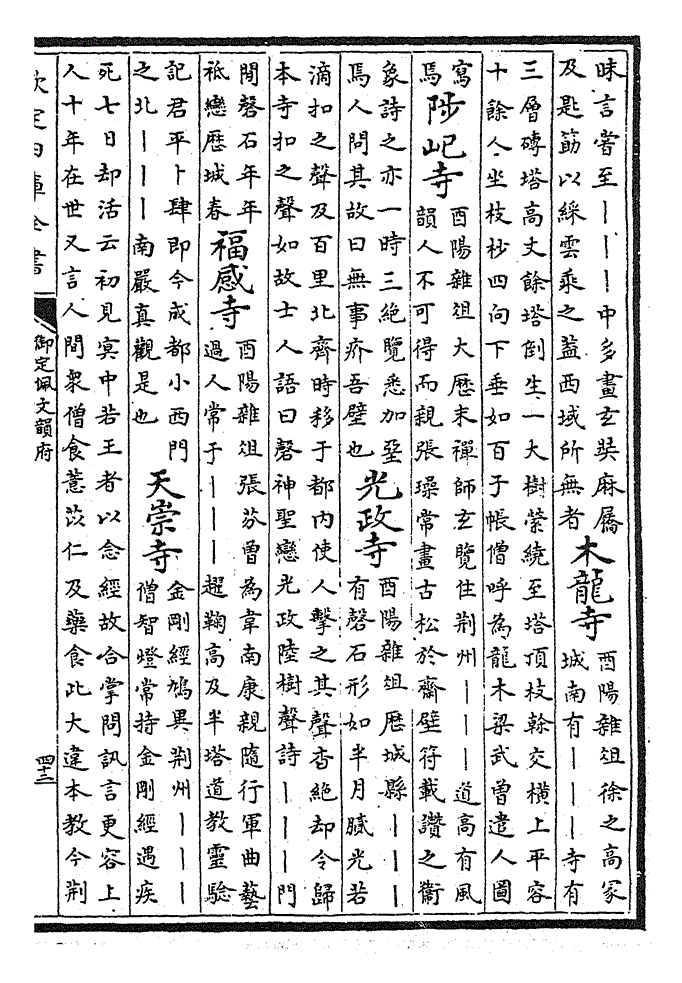 昧言嘗至｜｜｜中多畫玄奘麻屩
及是筯以綵雲乘之蓋西域所無者
木龍寺
酉陽雜俎徐之高冢
城南有｜｜｜寺有
三層磚塔高丈餘塔倒生一大樹縈繞至塔頂枝榦交橫上平容
十餘人坐枝杪四向下垂如百子帳僧呼為龍木梁武曽遣人圖
寫
焉
陟屺寺
酉陽雜俎大歷末禪師玄覽住荆州｜｜｜道高有風
韻人不可得而親張璪常畫古松於齋壁符載讚之衞
象詩之亦一時三絶覽悉加堊
焉人問其故曰無事疥吾壁也
光政寺
酉陽雜俎歷城縣｜｜｜
有磬石形如半月膩光若
滴扣之聲及百里北齊時移于都内使人擊之其聲杳絶却令歸
本寺扣之聲如故士人語曰磬神聖戀光政陸樹聲詩｜｜｜門
間磬石年年
祗戀歷城春
福感寺
酉陽雜俎張芬曽為韋南康親隨行軍曲藝
過人常于｜｜｜趯鞠高及半塔道教靈驗
記君平卜肆即今成都小西門
之北｜｜｜南嚴真觀是也
天崇寺
金剛經鳩異荆州｜｜｜
僧智燈常持金剛經遇疾
死七日却活云初見冥中若王者以念經故合掌問訊言更容上
人十年在世又言人間衆僧食薏苡仁及藥食此大違本教今荆
欽定四庫全書
御定佩文韻府
四十三